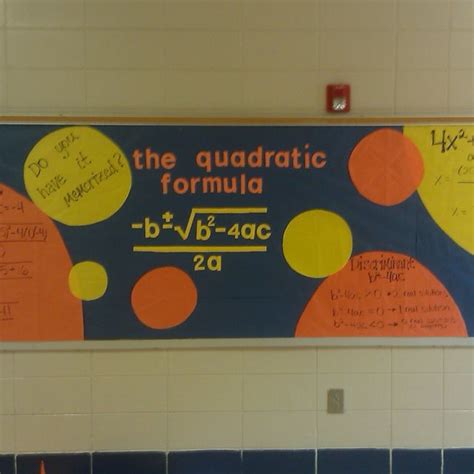 Do you
have it
memorized?
the quadratic
formula
-b±√b²-4ac
2a
4x²
x =
x =
Discriminant
b²-4ac
b²-4ac > 0 → 2 real solutions
b²-4ac = 0 → 1 real solution
b²-4ac < 0 →